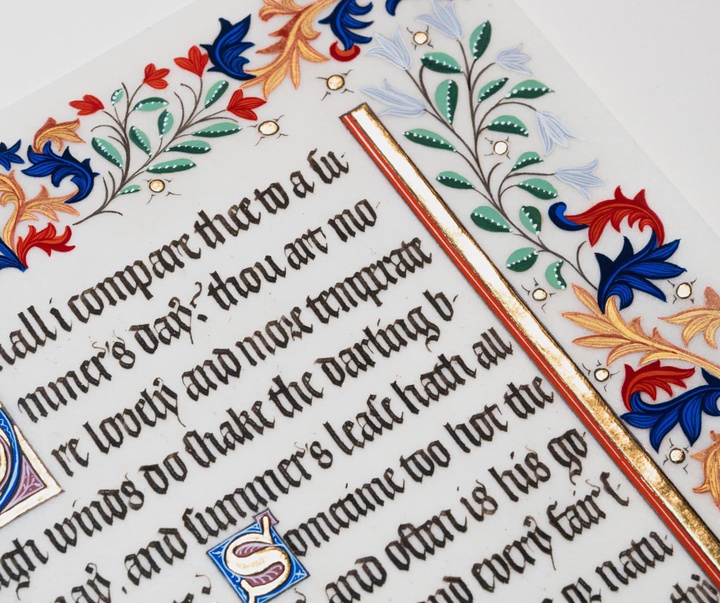 hall i compare thee to a ſu-
mmer's day? thou art mo
re lovely and more temperate
gh winds do ſhake the darling b-
ay, and ſummer's leaſe hath all
Sometime too hot the
and often is his go-
and every fair f
or natu